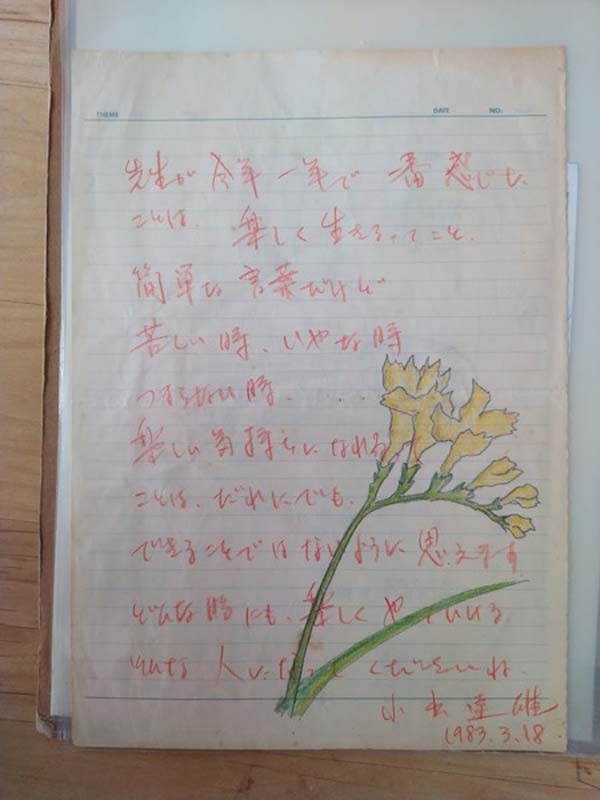 THEME DATE NO.
先生が今年一年で一番感じた
ことは、楽しく生きるってこと。
簡単な言葉だけど
苦しい時、いやな時
つまらない時、...
楽しい気持ちになれるって
ことは、だれにでも、
できることではないように思えます
どんな時にも、楽しくやっていける。
そんな人になってくださいね。
小 達雄
1983.3.18